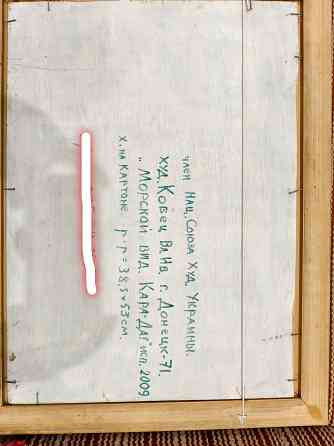 член Нац. Союза Худ. Украины.
худ. Ковец Вл. На. г. Донецк-71.
„Морской вид. Кара-Даг" исп. 2009
х. на картоне р-р = 38,5х53см.